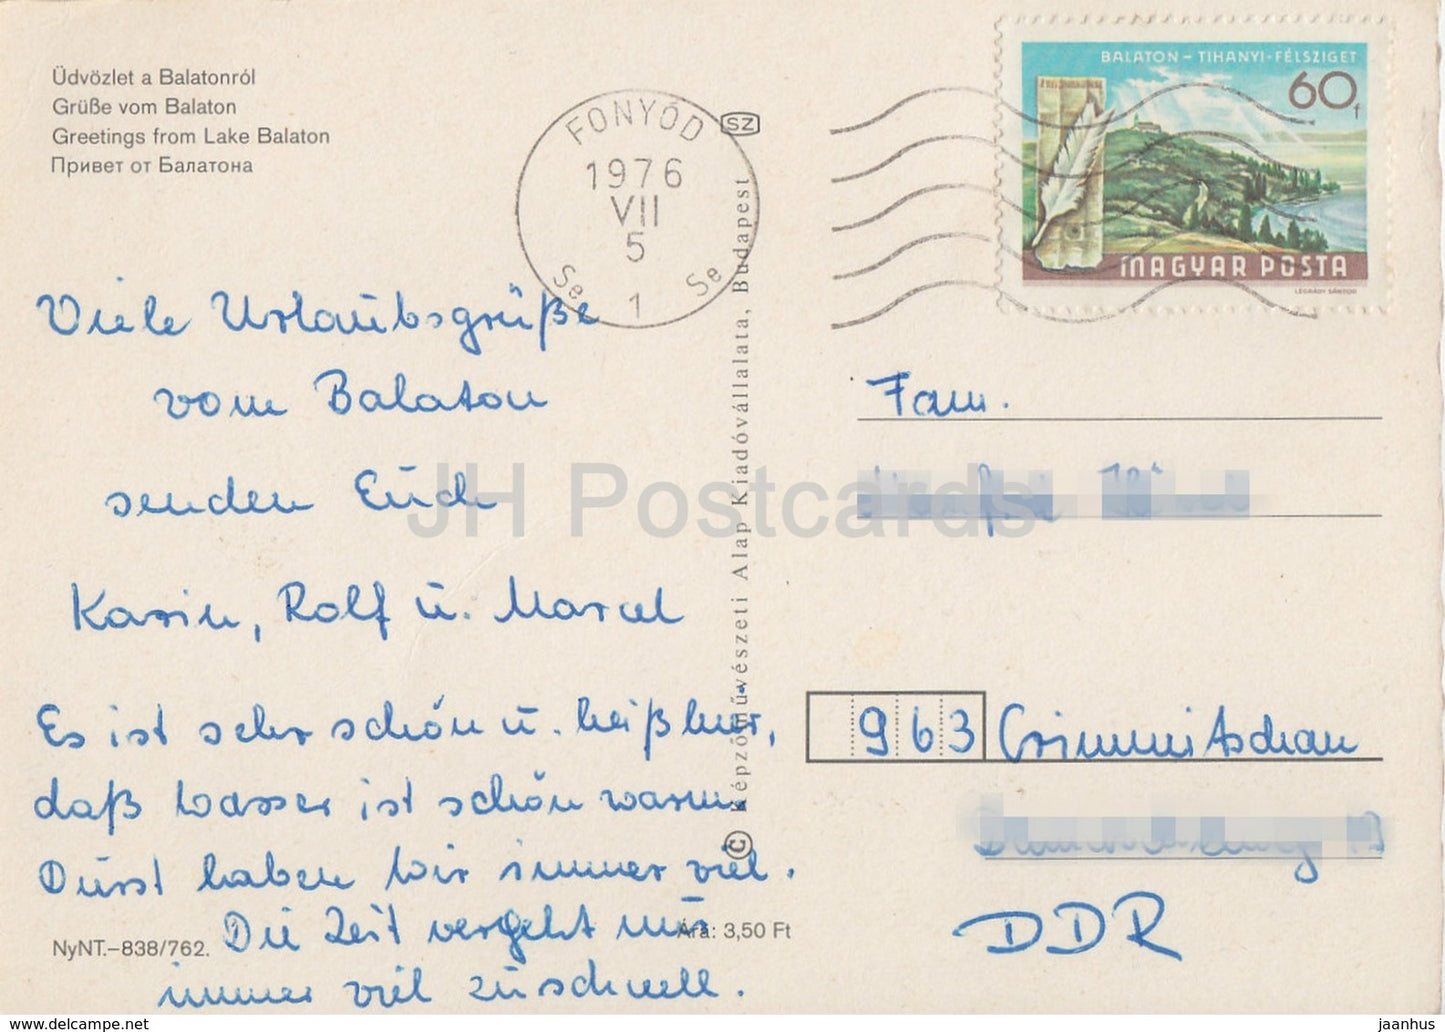 Üdvözlet a Balatonról
Grüße vom Balaton
Greetings from Lake Balaton
Привет от Балатона
FONYÓD
1976
VII
5
Se 1 Se
SZ
BALATON - TIHANYI-FÉLSZIGET
60f
MAGYAR POSTA
LÉGRÁDY SÁNDOR
Viele Urlaubsgrüße
vom Balaton
senden Euch
Karin, Rolf u. Marcel
Es ist sehr schön u. heiß hier,
daß Wasser ist schön warm.
Durst haben wir immer viel.
Die Zeit vergeht nur
immer viel zu schnell.
NyNT.–838/762.
Ára: 3,50 Ft
© Képzőművészeti Alap Kiadóvállalata, Budapest
JH Postcards
Fam.
963 Crimmitschau
DDR
www.delcampe.net
jaanhus